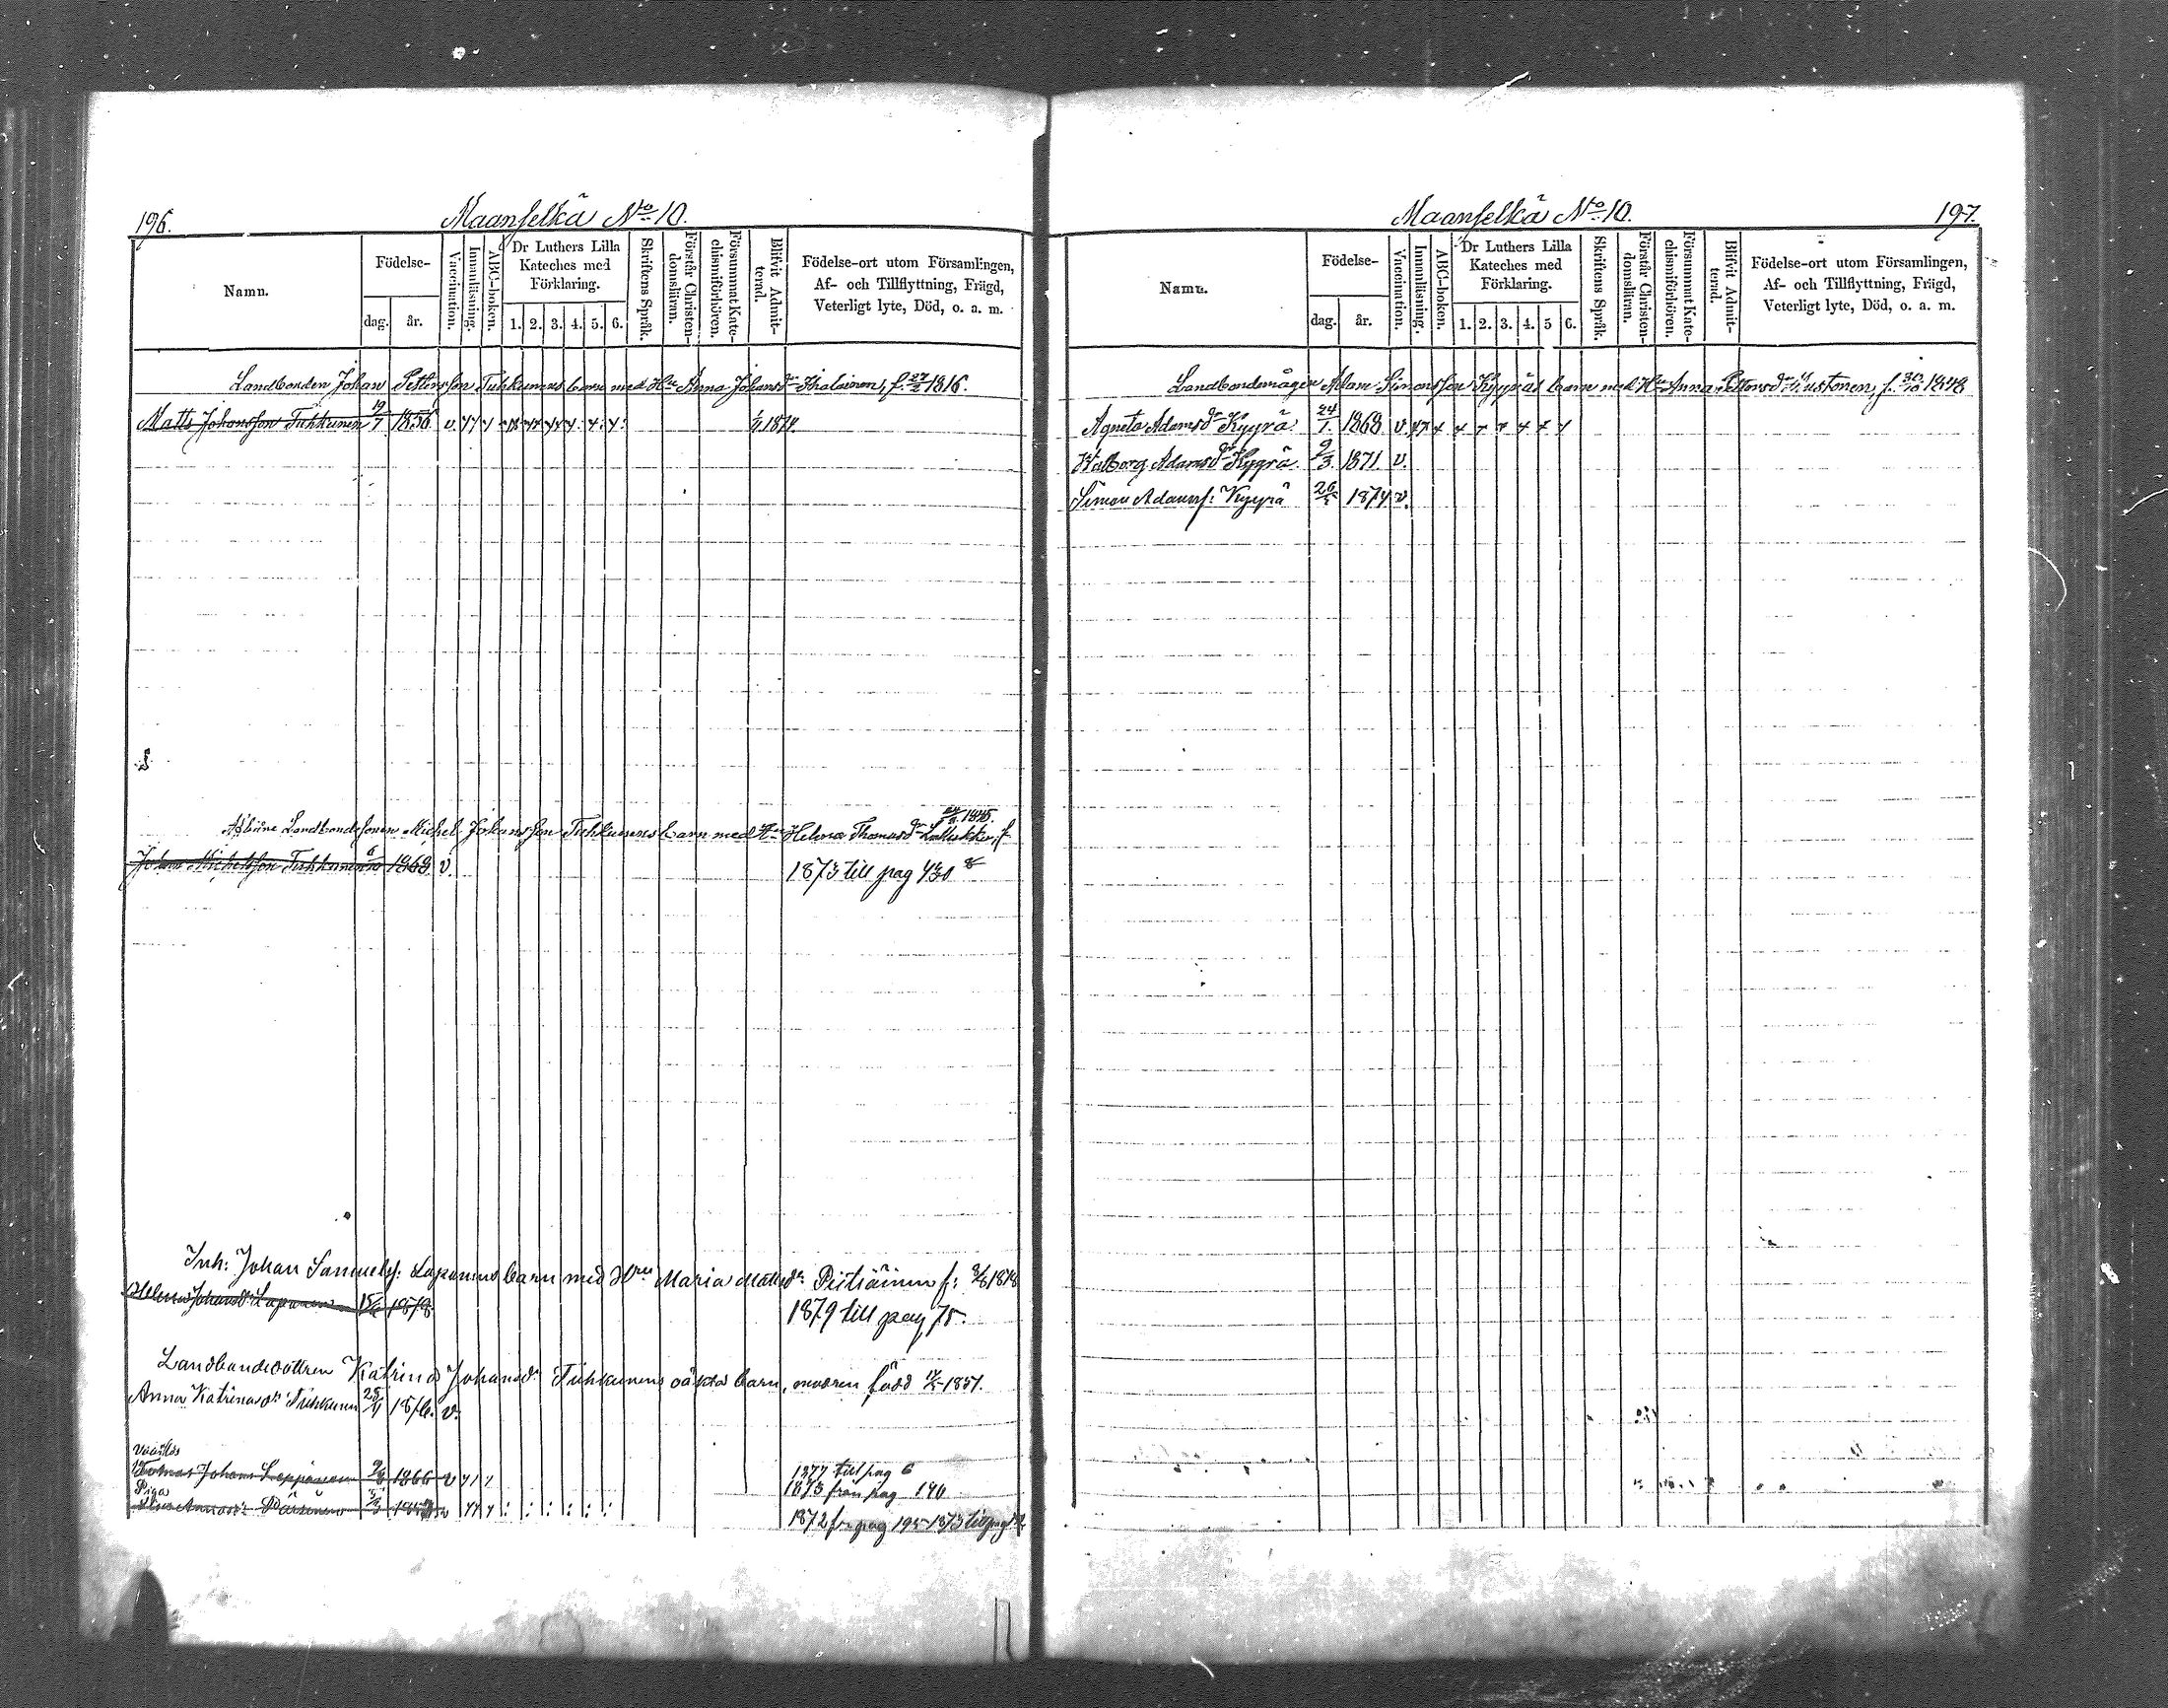 196.
Maanselkä No 10.
Namn.
Födelse-
dag.
år.
Vaccination.
Innanläsning.
ABC-boken.
Dr Luthers Lilla
Kateches med
Förklaring.
1. 2. 3. 4. 5. 6.
Skriftens Språk.
Förstår Christen-
domsläran.
Försummat Kate-
chismiförhören.
Blifvit Admit-
terad.
Födelse-ort utom Församlingen,
Af- och Tillflyttning, Frägd,
Veterligt lyte, Död, o. a. m.
Landbonden Johan Pettersson Tuhkunens barn med Hu Anna Johansdr f. 27/2 1816.
Matts Johansson Tuhkunen 19/7 1856. v.
Landbondesonen Michel Johansson Tuhkunens barn med Hu Helena Thomasdr f. 1845.
Johan Michelsson Tuhkunen 1868 v.
1873 till pag 430
Inh: Johan Samuelsf: Lapanens barn med Hru Maria Mattsdr f: 1848
Helena Johansdr Lapanen 15/6 1878
1879 till pag 75.
Landbondedottren Katrina Johansdr Tuhkunens oäkta barn, modren född 1851.
Anna Katrinasdr Tuhkunen 25/11 1876. v.
Johans Leppänen 1866 v
1877 till pag 6
1873 från pag 190
Piga
Annasdr Pärsinen
1872 fr pag 195 1873 till pag
Maanselkä No 10.
197.
Namn.
Födelse-
dag.
år.
Vaccination.
Innanläsning.
ABC-boken.
Dr Luthers Lilla
Kateches med
Förklaring.
1. 2. 3. 4. 5 6.
Skriftens Språk.
Förstår Christen-
domsläran.
Försummat Kate-
chismiförhören.
Blifvit Admit-
terad.
Födelse-ort utom Församlingen,
Af- och Tillflyttning, Frägd,
Veterligt lyte, Död, o. a. m.
Landbondemågen Adam Simonsson Kyyräs barn med Hu Anna Pettersdr Mustonen, f. 30/10 1848
Agneta Adamsdr Kyyrä. 24/1. 1868 v.
Walborg Adamsdr Kyyrä. 9/3. 1871 v.
Simon Adamsf: Kyyrä 26/5 1874 v.